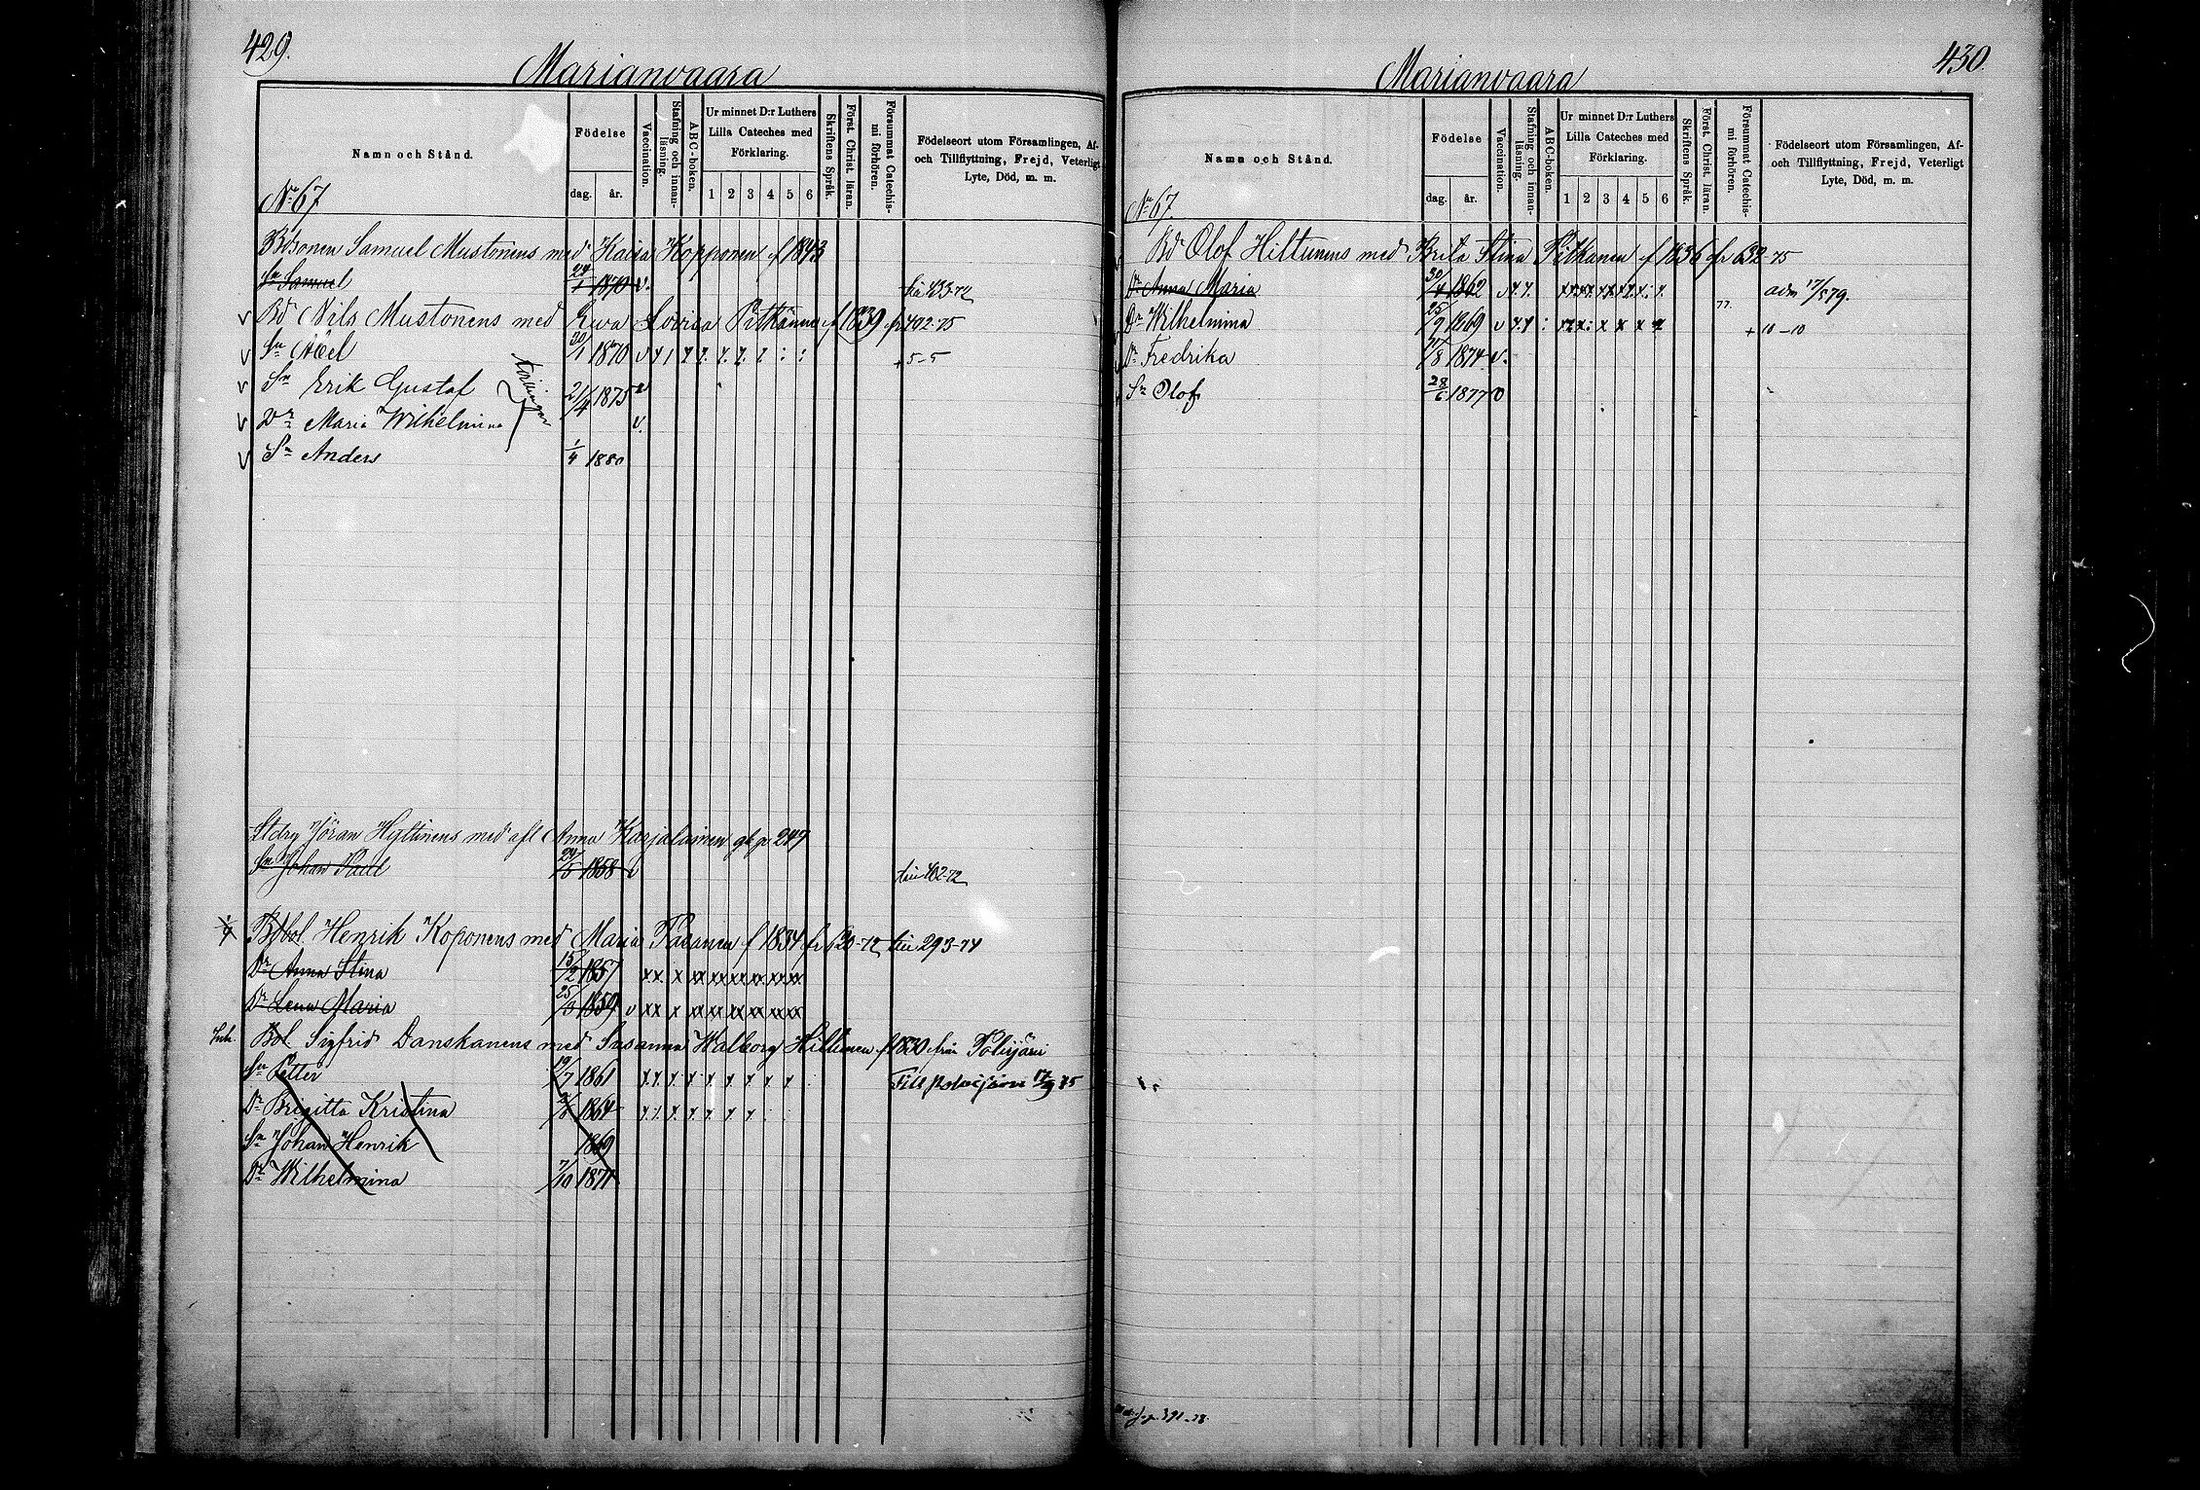 429.
Marianvaara
Namn och Stånd.
Födelse
dag. år.
Vaccination.
Stafning och innanläsning.
ABC-boken.
Ur minnet D:r Luthers Lilla Cateches med Förklaring.
1 2 3 4 5 6
Skriftens Språk.
Först. Christ. läran.
Försummat Catechismi förhören.
Födelseort utom Församlingen, Af- och Tillflyttning, Frejd, Veterligt Lyte, Död, m. m.
No 67
Bdsonen Samuel Mustonens med Kaisa Kopponen f 1843
Sn Samuel 1870 v. 433-72
v Bd Nils Mustonens med Ewa Lovisa Pitkänen f 1839 fr 402-75
v Sn Axel 20/1 1870 + 5-5
v Sn Erik Gustaf 21/4 1875 v
v Dr Maria Wilhelmina v.
v Sn Anders 1/4 1880
Göran Hyttinens med afl Anna Karjalainen 247
Sn Johan Paul 29/5 1858 402-72
Henrik Koponens med Maria f 1834 fr 120-72 293-74
Dr Anna Stina 15/2 1857 xx x xx xx xx xx xx xx
Dr Lena Maria 25/9 1859 v xx x xx xx xx xx xx xx
Inh. Bol. Sigfrid Danskanens med Susanna Walborg Hiltunen f 1830 från Polvijärvi
Sn Petter 19/7 1861 Till Polvijärvi 75
Dr Bregitta Kristina 1864
Sn Johan Henrik 1869
Dr Wilhelmina 7/10 1871
430.
Marianvaara
Namn och Stånd.
Födelse
dag. år.
Vaccination.
Stafning och innanläsning.
ABC-boken.
Ur minnet D:r Luthers Lilla Cateches med Förklaring.
1 2 3 4 5 6
Skriftens Språk.
Först. Christ. läran.
Försummat Catechismi förhören.
Födelseort utom Församlingen, Af- och Tillflyttning, Frejd, Veterligt Lyte, Död, m. m.
No 67.
Bd Olof Hiltunens med Brita Stina Pitkänen f 1836 fr 632-75
Dr Anna Maria 30/4 1862 77. adm 17/5 79.
Dr Wilhelmina 25/9 1869 + 10-10
Dr Fredrika 11/8 1874 v.
Sn Olof 28/6 1877 v